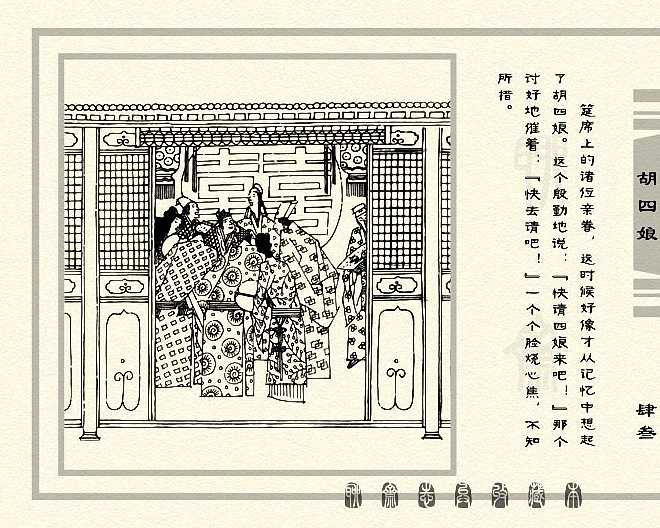 筵席上的诸位亲眷，这时候好像才从记忆中想起
了胡四娘。这个殷勤地说：『快请四娘来吧！』那个
讨好地催着：『快去请吧！』一个个脸烧心焦，不知
所措。
胡四娘
肆叁
囍